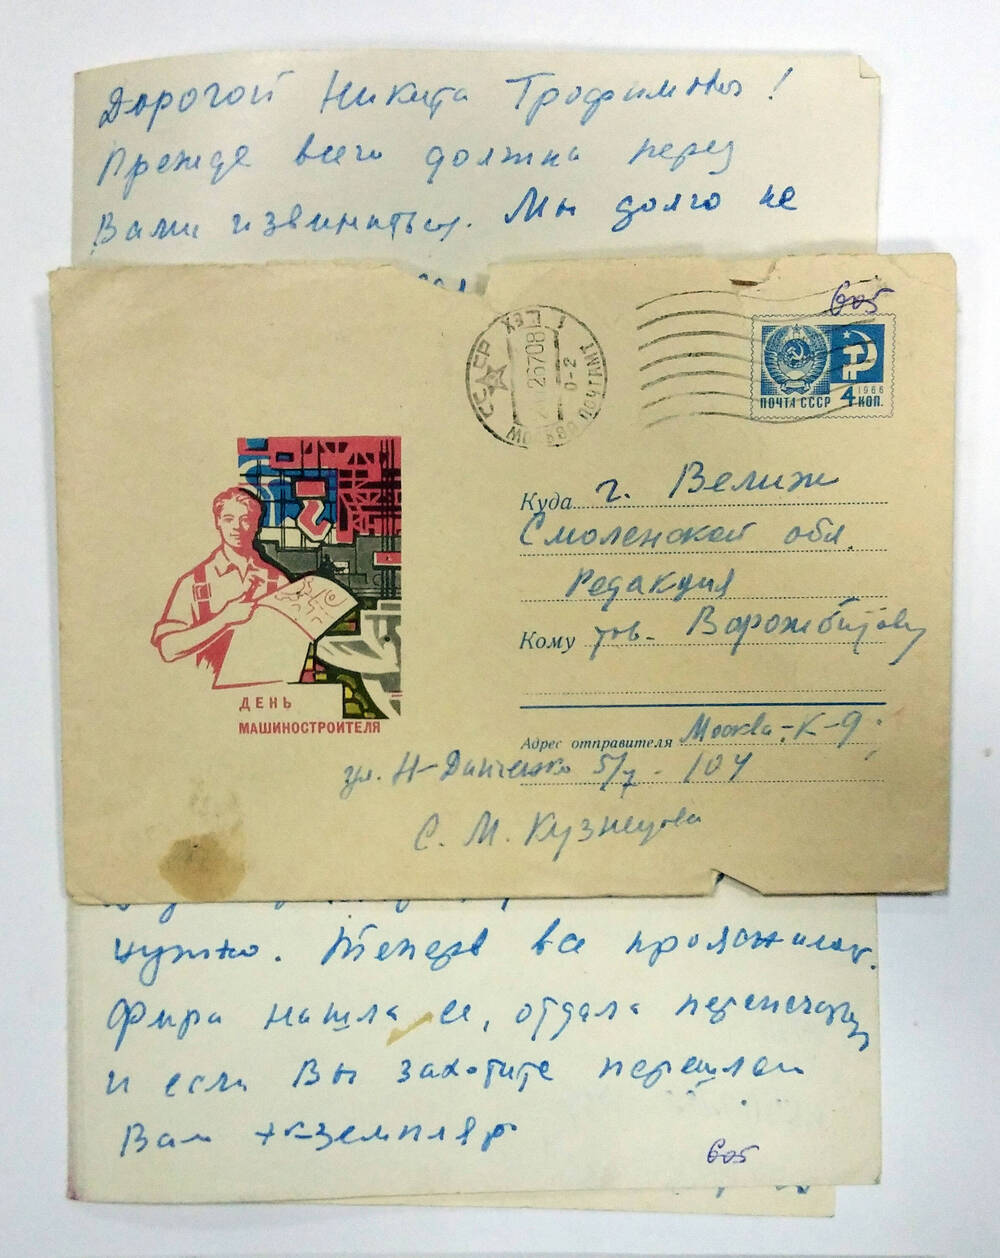 Дорогой Никита Трофимович!
Прежде всего должна перед
Вами извиниться. Мы долго не
605
СССР
МОСКВА
ПОЧТАМТ
ПОЧТА СССР
1966
4 КОП.
Куда г. Велиж
Смоленской обл.
Редакция
Кому тов. Ворожбитову
ДЕНЬ
МАШИНОСТРОИТЕЛЯ
Адрес отправителя Москва-К-9
ул. Н-Данченко 5/7-104
С. М. Кузнецова
нужно. Теперь все прояснилось.
Фира нашла ее, отдала перепечатку
и если Вы захотите перешлем
Вам экземпляр
605